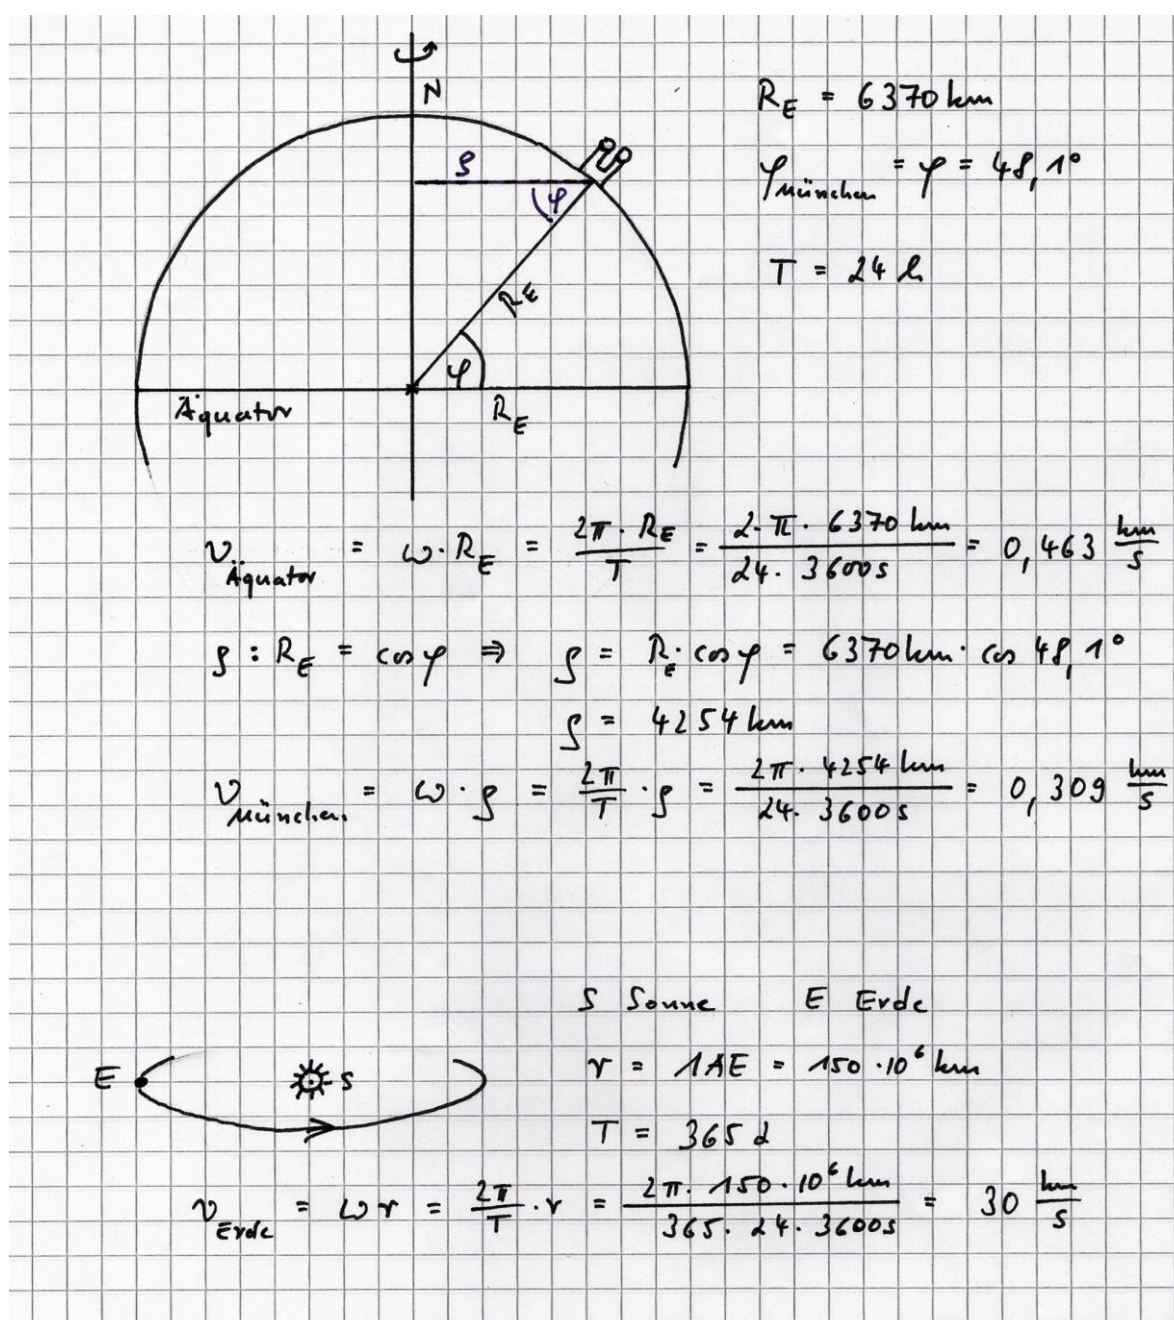 N
R_E = 6370 km
ρ
φ_München = φ = 48,1°
φ
T = 24 h
R_E
φ
Äquator
R_E
v_Äquator = ω · R_E = 2π · R_E / T = 2 · π · 6370 km / 24 · 3600 s = 0,463 km/s
ρ : R_E = cos φ ⇒ ρ = R_E · cos φ = 6370 km · cos 48,1°
ρ = 4254 km
v_München. = ω · ρ = 2π/T · ρ = 2π · 4254 km / 24 · 3600 s = 0,309 km/s
S Sonne E Erde
E S
r = 1AE = 150 · 10⁶ km
T = 365 d
v_Erde = ω r = 2π/T · r = 2π · 150 · 10⁶ km / 365 · 24 · 3600 s = 30 km/s